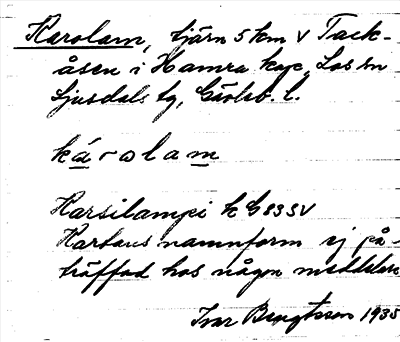 Karolam, tjärn 5 km V Tack-
åsen i Hamra kap., Los sn
Ljusdals tg, Gävleb. l.
károlam
Karsilampi k G 83 SV
Kartans namnform ej på-
träffad hos någon meddelare
Ivar Bengtsson 1935